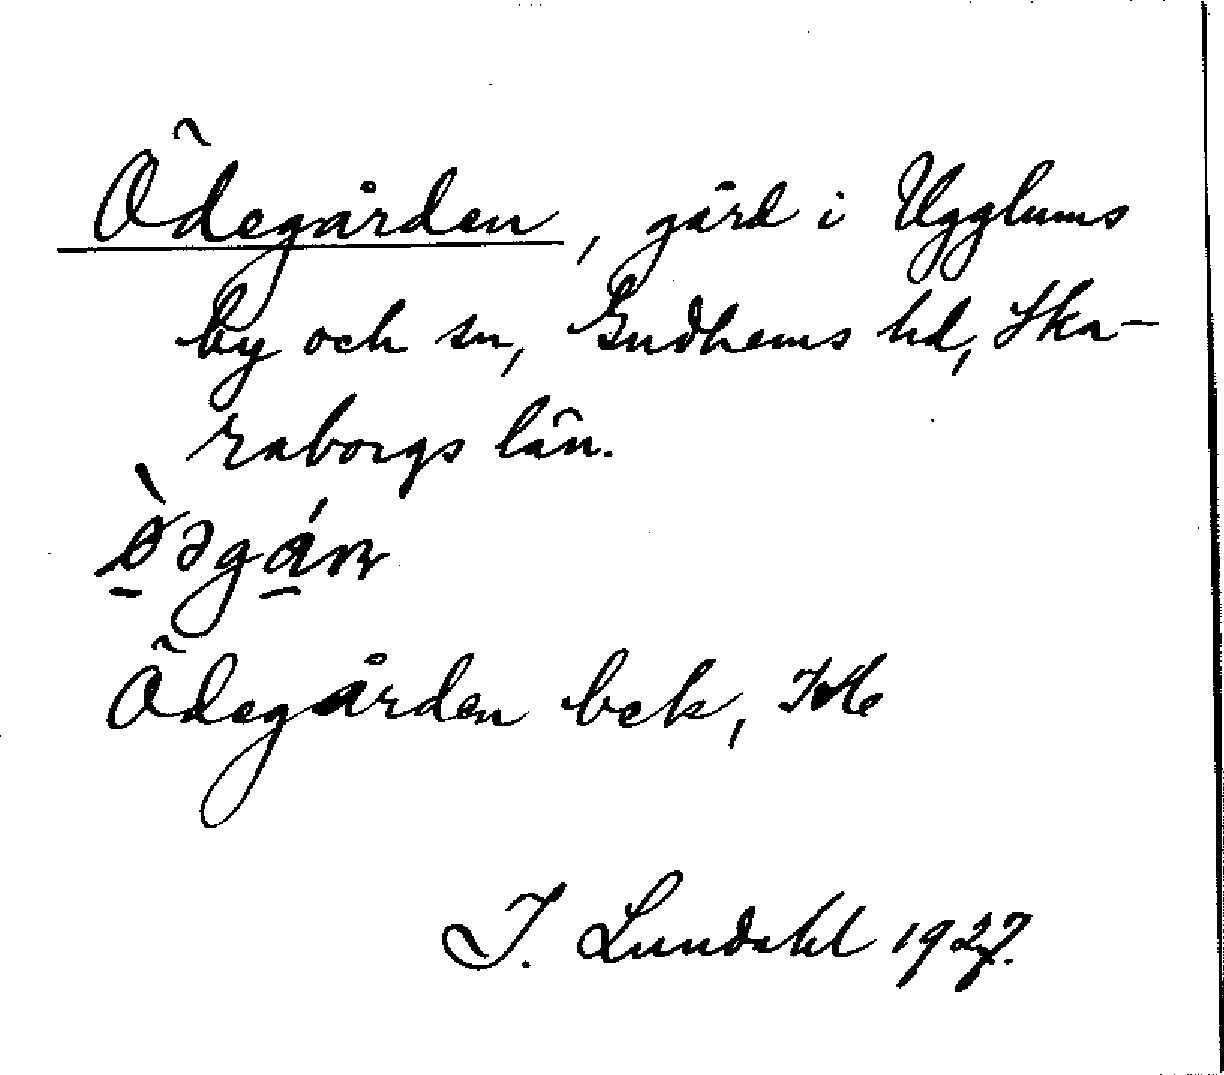 Ödegården, gård i Ugglums
by och sn, Gudhems hd, Ska-
raborgs län.
Ödegården bek,
I. Lundahl 1927.